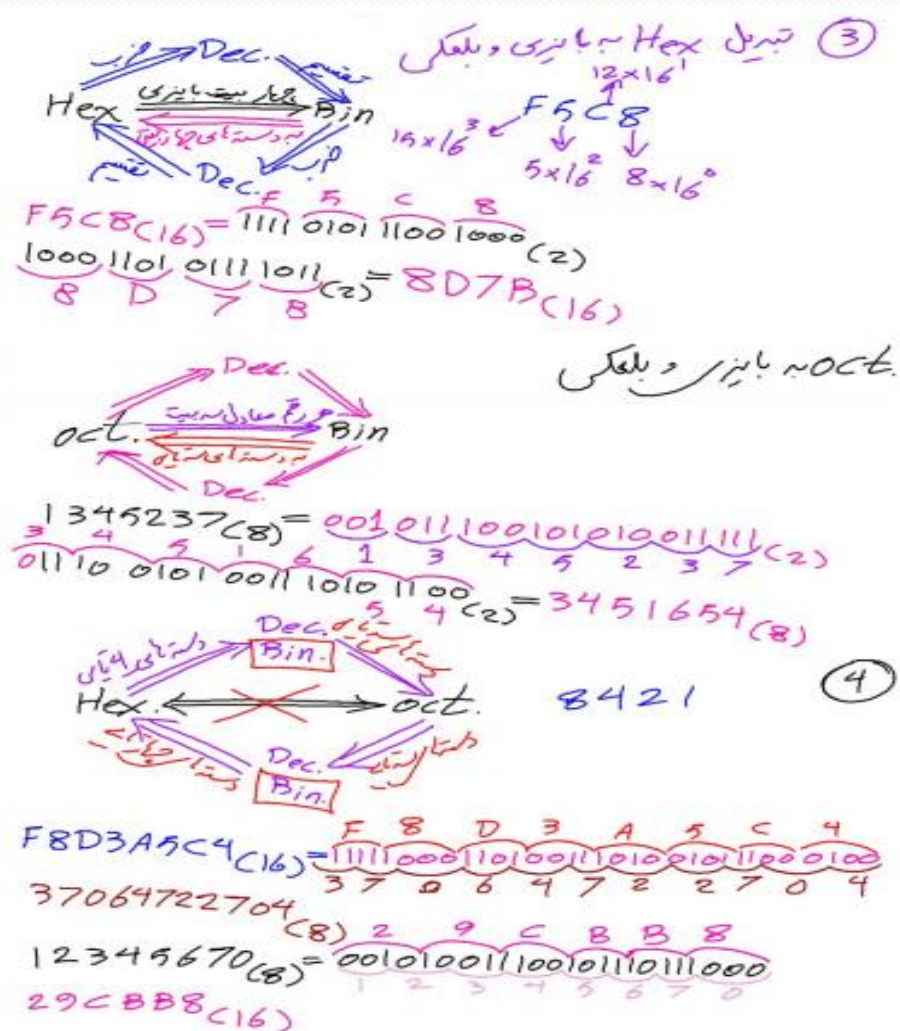 ③ تبدیل Hex به باینری و بلعکس
Dec.
ضرب تقسیم
Hex چهار بیت باینری Bin
به دسته های چهارتایی
تقسیم ضرب
Dec.
12×16¹
F5C8
15×16³
5×16² 8×16⁰
F 5 C 8
F5C8(16) = 1111 0101 1100 1000(2)
1000 1101 0111 1011(2) = 8D7B(16)
8 D 7 B
oct. به باینری و بلعکس
Dec.
oct. هر رقم معادل سه بیت Bin
به دسته های سه تایی
Dec.
1345237(8) = 001 011 100 101 010 011 111(2)
1 3 4 5 2 3 7
3 4 5 1 6 5 4
01110 0101 0011 1010 1100(2) = 3451654(8)
④
Dec.
Bin.
دسته های 4 تایی
Hex. oct. 8421
Dec.
Bin.
F 8 D 3 A 5 C 4
F8D3A5C4(16) = 11111000110100111010010111000100
3 7 0 6 4 7 2 2 7 0 4
37064722704(8)
2 9 C B B 8
12345670(8) = 001010011100101110111000
1 2 3 4 5 6 7 0
29CBB8(16)